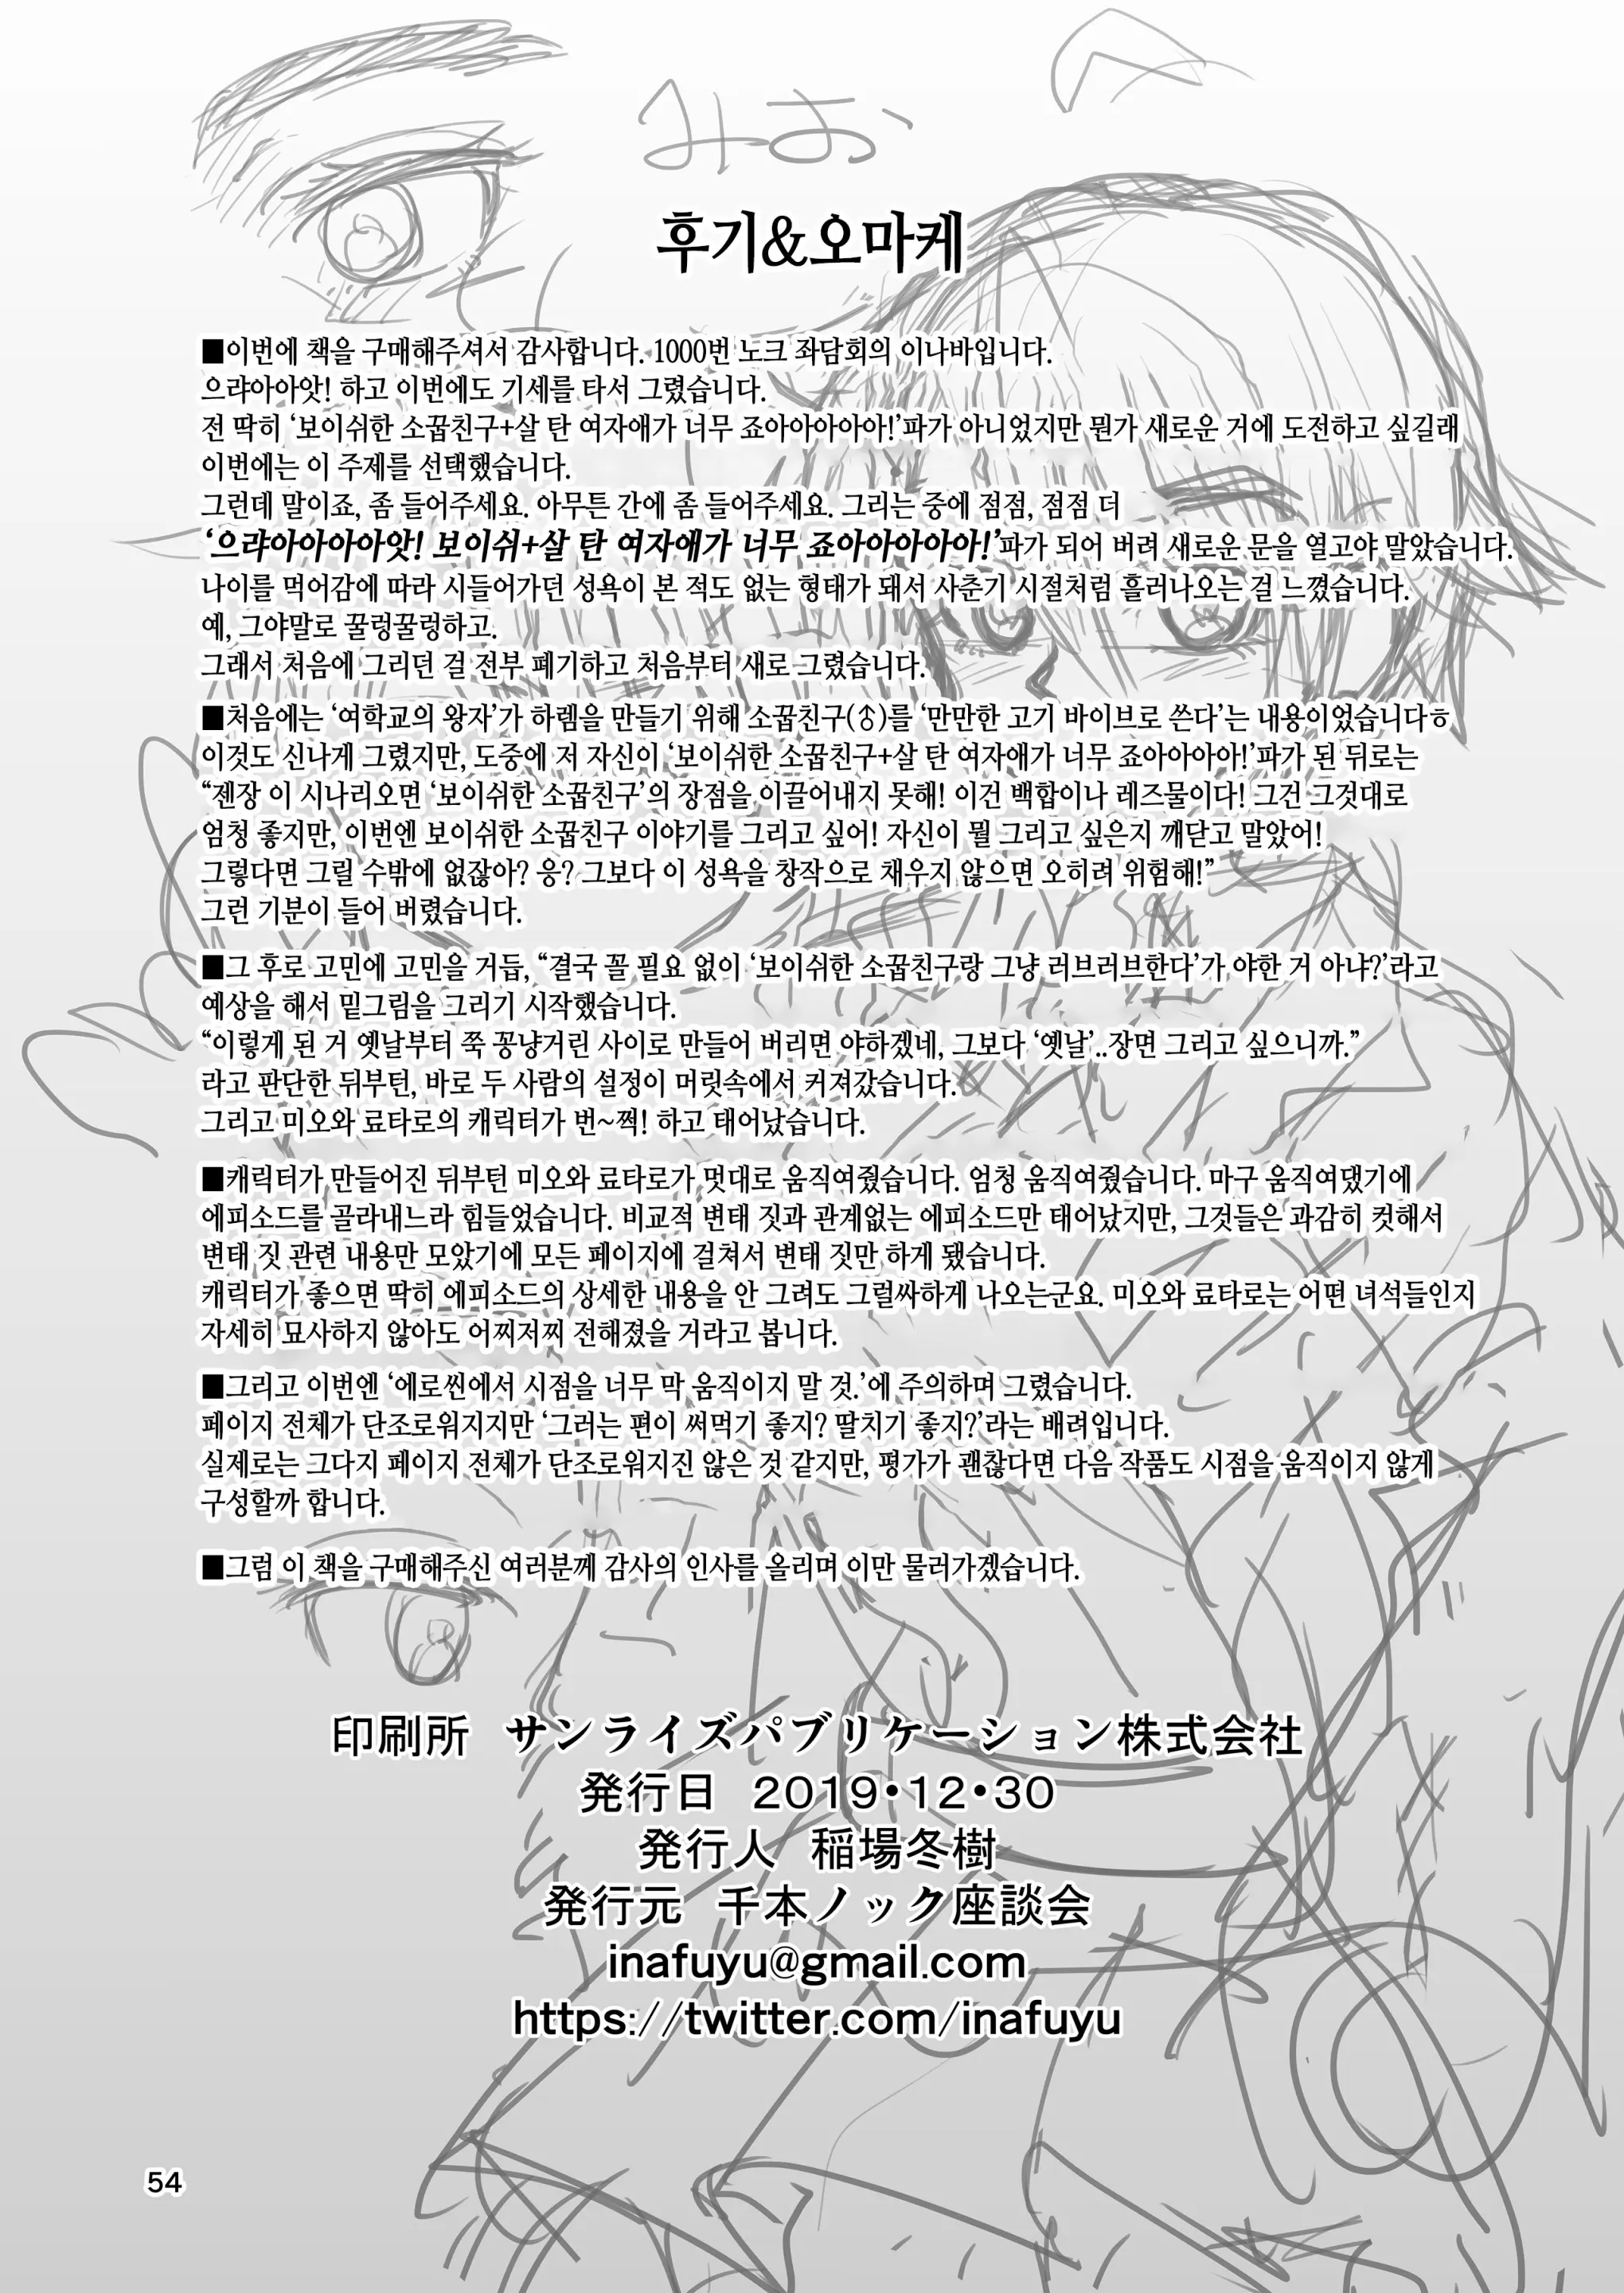 みお
후기&오마케
■이번에 책을 구매해주셔서 감사합니다. 1000번 노크 좌담회의 이나바입니다.
으랴아아앗! 하고 이번에도 기세를 타서 그렸습니다.
전 딱히 ‘보이쉬한 소꿉친구+살 탄 여자애가 너무 죠아아아아아!’파가 아니었지만 뭔가 새로운 거에 도전하고 싶길래
이번에는 이 주제를 선택했습니다.
그런데 말이죠, 좀 들어주세요. 아무튼 간에 좀 들어주세요. 그리는 중에 점점, 점점 더
‘으랴아아아아앗! 보이쉬+살 탄 여자애가 너무 죠아아아아아!’파가 되어 버려 새로운 문을 열고야 말았습니다.
나이를 먹어감에 따라 시들어가던 성욕이 본 적도 없는 형태가 돼서 사춘기 시절처럼 흘러나오는 걸 느꼈습니다.
예, 그야말로 꿀렁꿀렁하고.
그래서 처음에 그리던 걸 전부 폐기하고 처음부터 새로 그렸습니다.
■처음에는 ‘여학교의 왕자’가 하렘을 만들기 위해 소꿉친구(♂)를 ‘만만한 고기 바이브로 쓴다’는 내용이었습니다ㅎ
이것도 신나게 그렸지만, 도중에 저 자신이 ‘보이쉬한 소꿉친구+살 탄 여자애가 너무 죠아아아아!’파가 된 뒤로는
“젠장 이 시나리오면 ‘보이쉬한 소꿉친구’의 장점을 이끌어내지 못해! 이건 백합이나 레즈물이다! 그건 그것대로
엄청 좋지만, 이번엔 보이쉬한 소꿉친구 이야기를 그리고 싶어! 자신이 뭘 그리고 싶은지 깨닫고 말았어!
그렇다면 그릴 수밖에 없잖아? 응? 그보다 이 성욕을 창작으로 채우지 않으면 오히려 위험해!”
그런 기분이 들어 버렸습니다.
■그 후로 고민에 고민을 거듭, “결국 꼴 필요 없이 ‘보이쉬한 소꿉친구랑 그냥 러브러브한다’가 야한 거 아냐?’라고
예상을 해서 밑그림을 그리기 시작했습니다.
“이렇게 된 거 옛날부터 쭉 꽁냥거린 사이로 만들어 버리면 야하겠네, 그보다 ‘옛날’..장면 그리고 싶으니까.”
라고 판단한 뒤부턴, 바로 두 사람의 설정이 머릿속에서 커져갔습니다.
그리고 미오와 료타로의 캐릭터가 번~쩍! 하고 태어났습니다.
■캐릭터가 만들어진 뒤부턴 미오와 료타로가 멋대로 움직여줬습니다. 엄청 움직여줬습니다. 마구 움직여댔기에
에피소드를 골라내느라 힘들었습니다. 비교적 변태 짓과 관계없는 에피소드만 태어났지만, 그것들은 과감히 컷해서
변태 짓 관련 내용만 모았기에 모든 페이지에 걸쳐서 변태 짓만 하게 됐습니다.
캐릭터가 좋으면 딱히 에피소드의 상세한 내용을 안 그려도 그럴싸하게 나오는군요. 미오와 료타로는 어떤 녀석들인지
자세히 묘사하지 않아도 어찌저찌 전해졌을 거라고 봅니다.
■그리고 이번엔 ‘에로씬에서 시점을 너무 막 움직이지 말 것.’에 주의하며 그렸습니다.
페이지 전체가 단조로워지지만 ‘그러는 편이 써먹기 좋지? 딸치기 좋지?’라는 배려입니다.
실제로는 그다지 페이지 전체가 단조로워지진 않은 것 같지만, 평가가 괜찮다면 다음 작품도 시점을 움직이지 않게
구성할까 합니다.
■그럼 이 책을 구매해주신 여러분께 감사의 인사를 올리며 이만 물러가겠습니다.
印刷所 サンライズパブリケーション株式会社
発行日 2019・12・30
発行人 稲場冬樹
発行元 千本ノック座談会
inafuyu@gmail.com
https://twitter.com/inafuyu
54